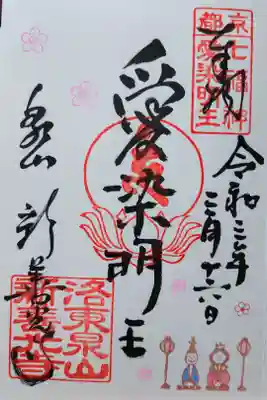 奉拝
京七福神
都愛染明王
令和三年
三月十六日
愛染明王
泉山 新善光寺
洛東泉山
新善光寺